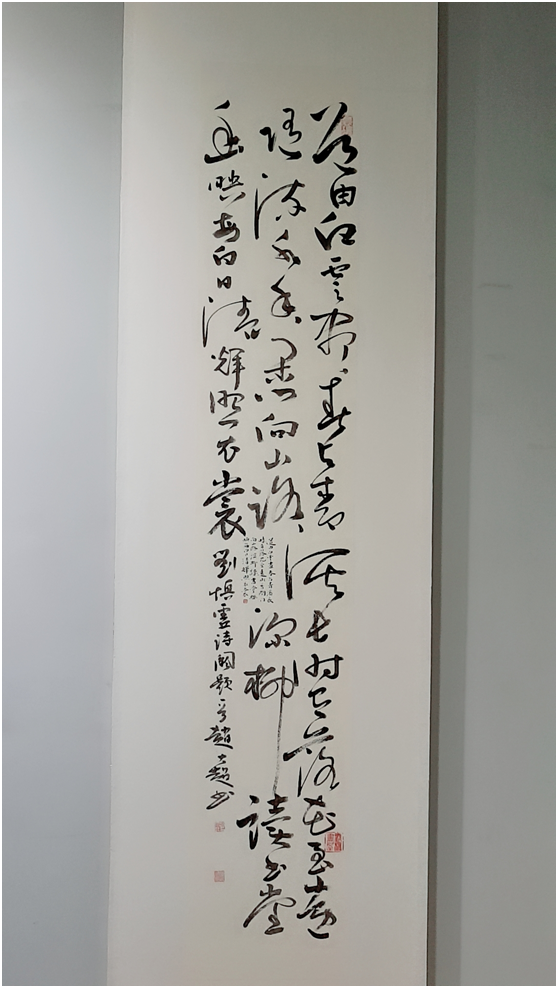 道由白雲盡春与青溪長時有落花至遠
隨流水香閑門向山路深柳讀書堂
幽映每白日清輝照衣裳劉慎虛詩闕題一首趙超书